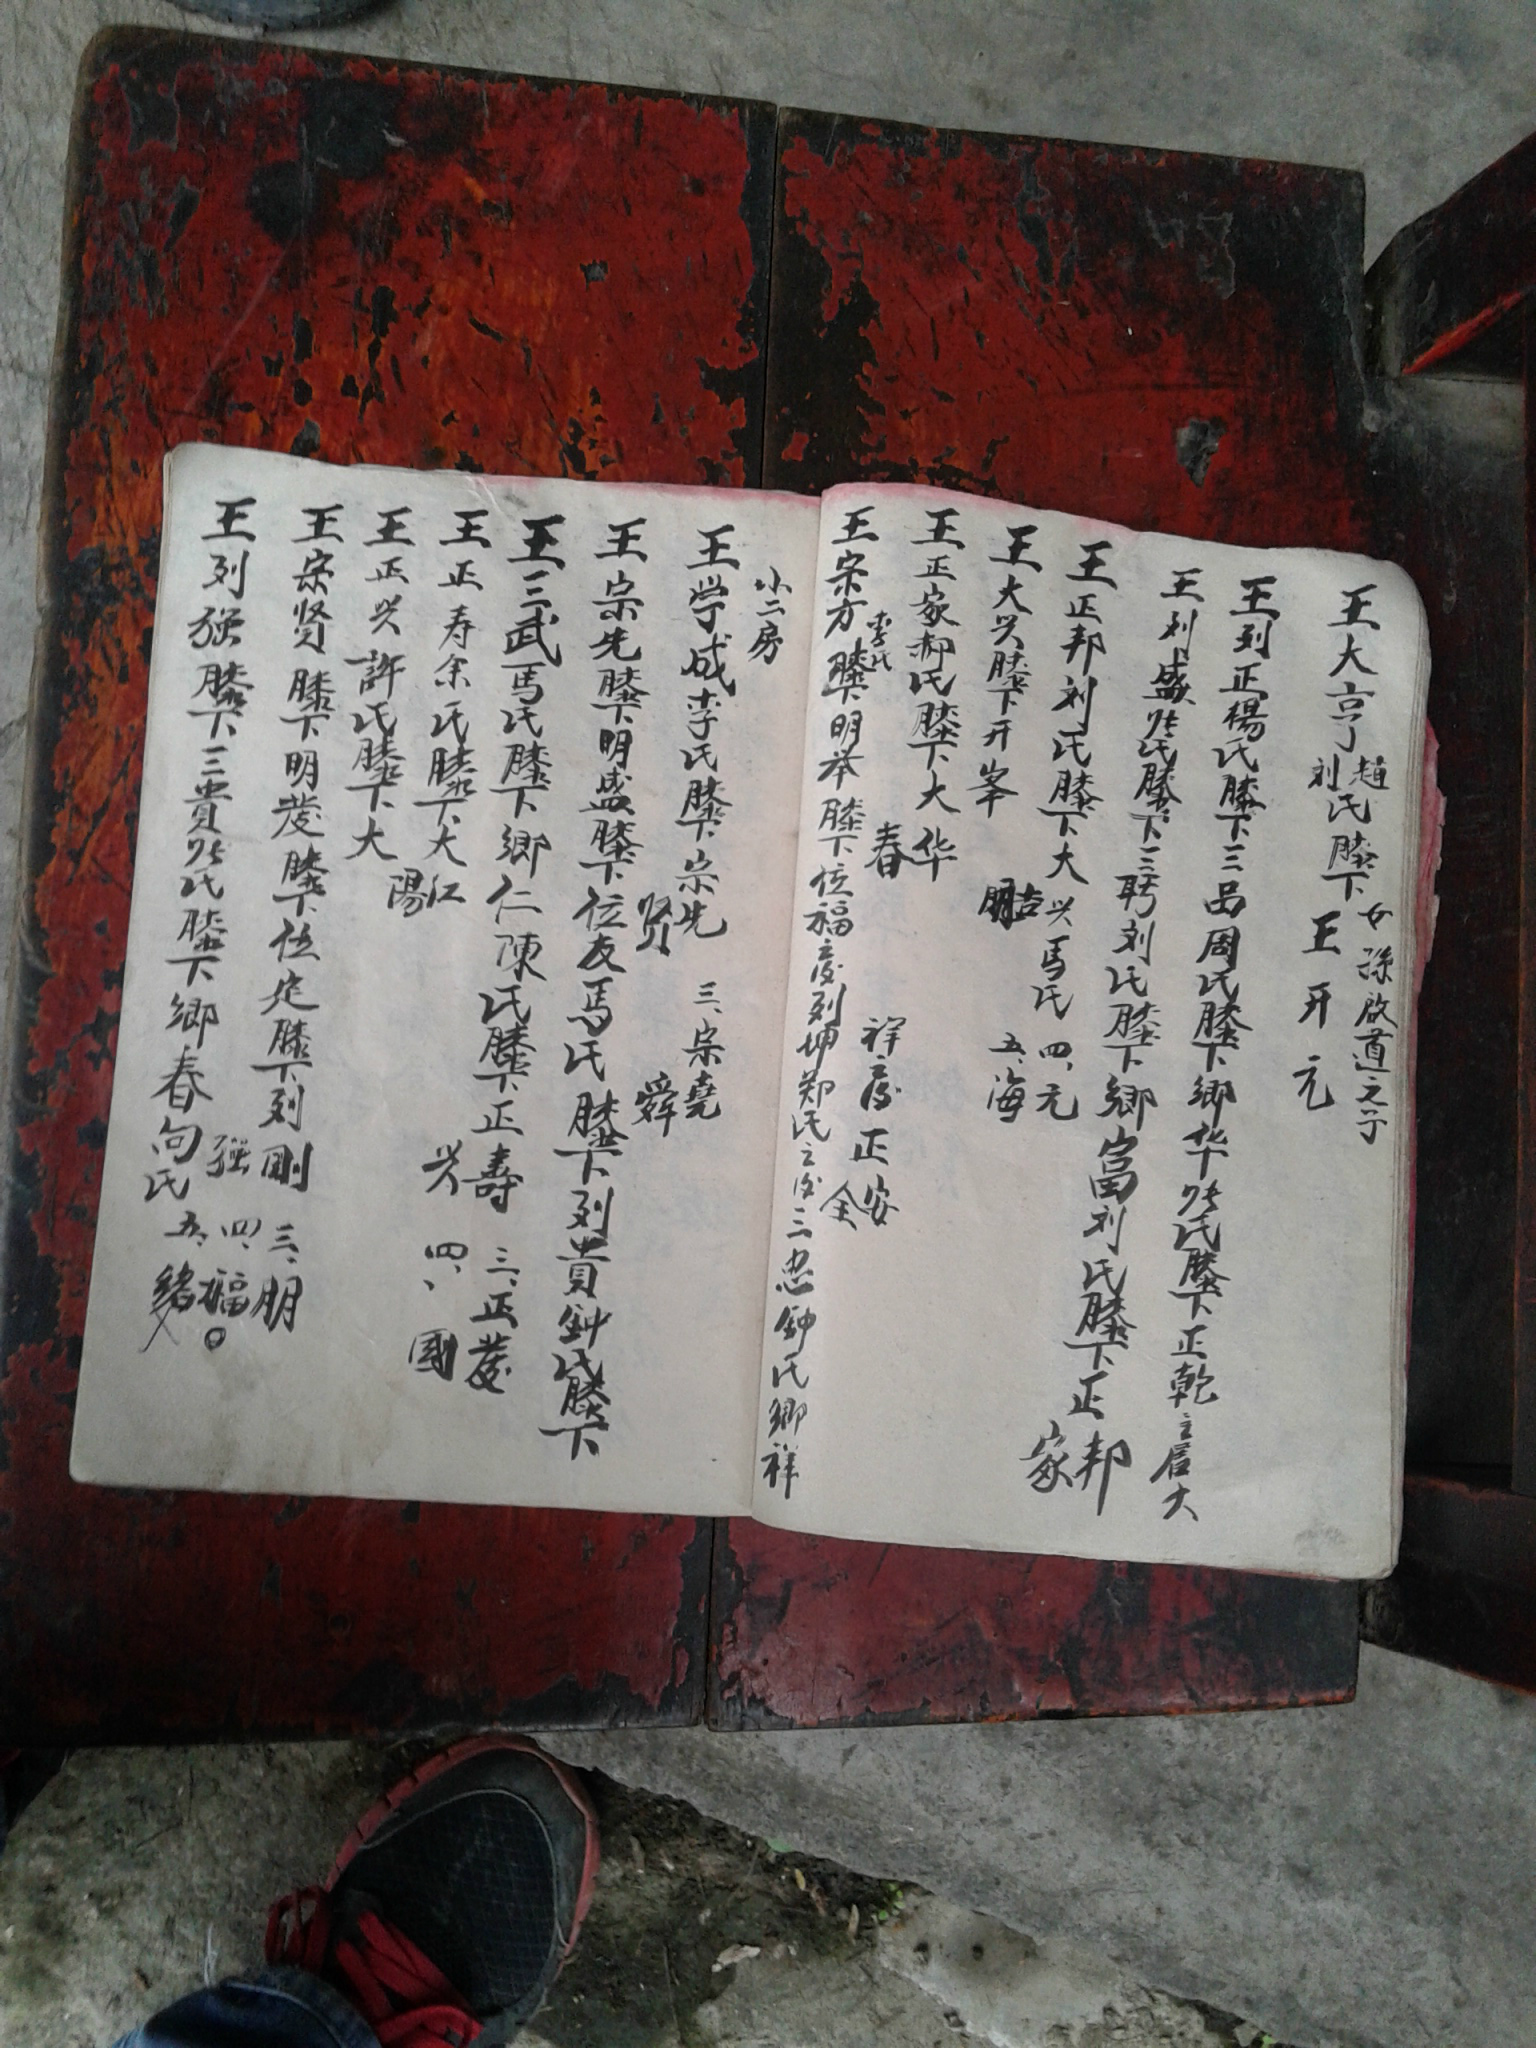 王大亨趙氏刘氏膝下女孫啟道之子王开元
王列正楊氏膝下三品周氏膝下鄉华张氏膝下正乾之后大
王列盛张氏膝下三聘刘氏膝下鄉富刘氏膝下正邦家
王正邦刘氏膝下大兴馬氏 四、元
吉朋 五、海
王大兴膝下开峯
王正家郝氏膝下大华春 祥之後正安全
王宗方李氏膝下明举膝下位福之後列坤郑氏之後三忠钟氏鄉祥
小二房
王学成李氏膝下宗先贤 三、宗堯舜
王宗先膝下明盛膝下位友馬氏膝下列貴钟氏膝下
王三武馬氏膝下鄉仁陳氏膝下正壽兴 三、正发 四、國
王正寿余氏膝下大江陽
王正兴許氏膝下大
王宗贤膝下明发膝下位定膝下列剛强 三、朋 四、福 五、
王列强膝下三貴张氏膝下鄉春向氏